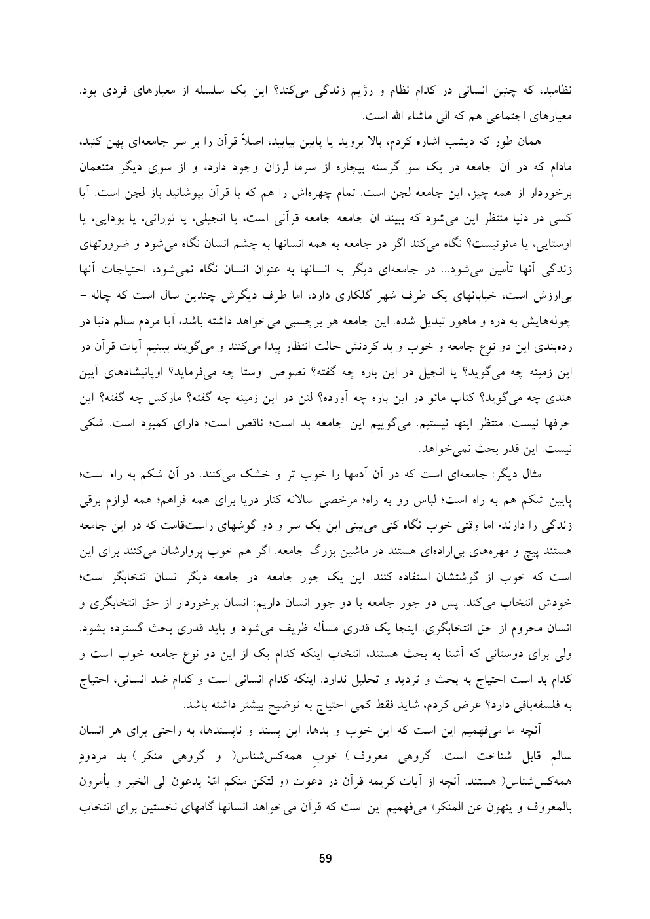 نظامید، که چنین انسانی در کدام نظام و رژیم زندگی می‌کند؟ این یک سلسله از معیارهای فردی بود.
معیارهای اجتماعی هم که الی ماشاء الله است.
همان طور که دیشب اشاره کردم، بالا بروید یا پایین بیایید، اصلاً قرآن را بر سر جامعه‌ای پهن کنید،
مادام که در آن جامعه در یک سو گرسنه بیچاره از سرما لرزان وجود دارد، و از سوی دیگر متنعمان
برخوردار از همه چیز، این جامعه لجن است. تمام چهره‌اش را هم که با قرآن بپوشانید باز لجن است. آیا
کسی در دنیا منتظر این می‌شود که ببیند آن جامعه جامعه قرآنی است، یا انجیلی، یا توراتی، یا بودایی، یا
اوستایی، یا مائوئیست؟ نگاه می‌کند اگر در جامعه به همه انسانها به چشم انسان نگاه می‌شود و ضرورتهای
زندگی آنها تأمین می‌شود... در جامعه‌ای دیگر به انسانها به عنوان انسان نگاه نمی‌شود، احتیاجات آنها
بی‌ارزش است، خیابانهای یک طرف شهر گلکاری دارد، اما طرف دیگرش چندین سال است که چاله -
چوله‌هایش به دره و ماهور تبدیل شده. این جامعه هر برچسبی می‌خواهد داشته باشد، آیا مردم سالم دنیا در
رده‌بندی این دو نوع جامعه و خوب و بد کردنش حالت انتظار پیدا می‌کنند و می‌گویند ببینیم آیات قرآن در
این زمینه چه می‌گوید؟ یا انجیل در این باره چه گفته؟ نصوص اوستا چه می‌فرماید؟ اوپانیشادهای آیین
هندی چه می‌گوید؟ کتاب مائو در این باره چه آورده؟ لنن در این زمینه چه گفته؟ مارکس چه گفته؟ این
حرفها نیست. منتظر اینها نیستیم. می‌گوییم این جامعه بد است؛ ناقص است؛ دارای کمبود است. شکی
نیست. این قدر بحث نمی‌خواهد.
مثال دیگر: جامعه‌ای است که در آن آدمها را خوب تر و خشک می‌کنند. در آن شکم به راه است؛
پایین شکم هم به راه است؛ لباس رو به راه؛ مرخصی سالانه کنار دریا برای همه فراهم؛ همه لوازم برقی
زندگی را دارند؛ اما وقتی خوب نگاه کنی می‌بینی این یک سر و دو گوشهای راست‌قامت که در این جامعه
هستند پیچ و مهره‌های بی‌اراده‌ای هستند در ماشین بزرگ جامعه. اگر هم خوب پروارشان می‌کنند برای این
است که خوب از گوشتشان استفاده کنند. این یک جور جامعه. در جامعه دیگر انسان انتخابگر است؛
خودش انتخاب می‌کند. پس دو جور جامعه با دو جور انسان داریم: انسان برخوردار از حق انتخابگری و
انسان محروم از حق انتخابگری. اینجا یک قدری مسأله ظریف می‌شود و باید قدری بحث گسترده بشود.
ولی برای دوستانی که آشنا به بحث هستند، انتخاب اینکه کدام یک از این دو نوع جامعه خوب است و
کدام بد است احتیاج به بحث و تردید و تحلیل ندارد. اینکه کدام انسانی است و کدام ضد انسانی، احتیاج
به فلسفه‌بافی دارد؟ عرض کردم، شاید فقط کمی احتیاج به توضیح بیشتر داشته باشد.
آنچه ما می‌فهمیم این است که این خوب و بدها، این پسند و ناپسندها، به راحتی برای هر انسان
سالم قابل شناخت است. گروهی معروف ) خوبِ همه‌کس‌شناس( و گروهی منکر ) بد مردودِ
همه‌کس‌شناس( هستند. آنچه از آیات کریمه قرآن در دعوت «و لتکن منکم امّة یدعون الی الخیر و یأمرون
بالمعروف و ینهون عن المنکر» می‌فهمیم این است که قرآن می‌خواهد انسانها گامهای نخستین برای انتخاب
59